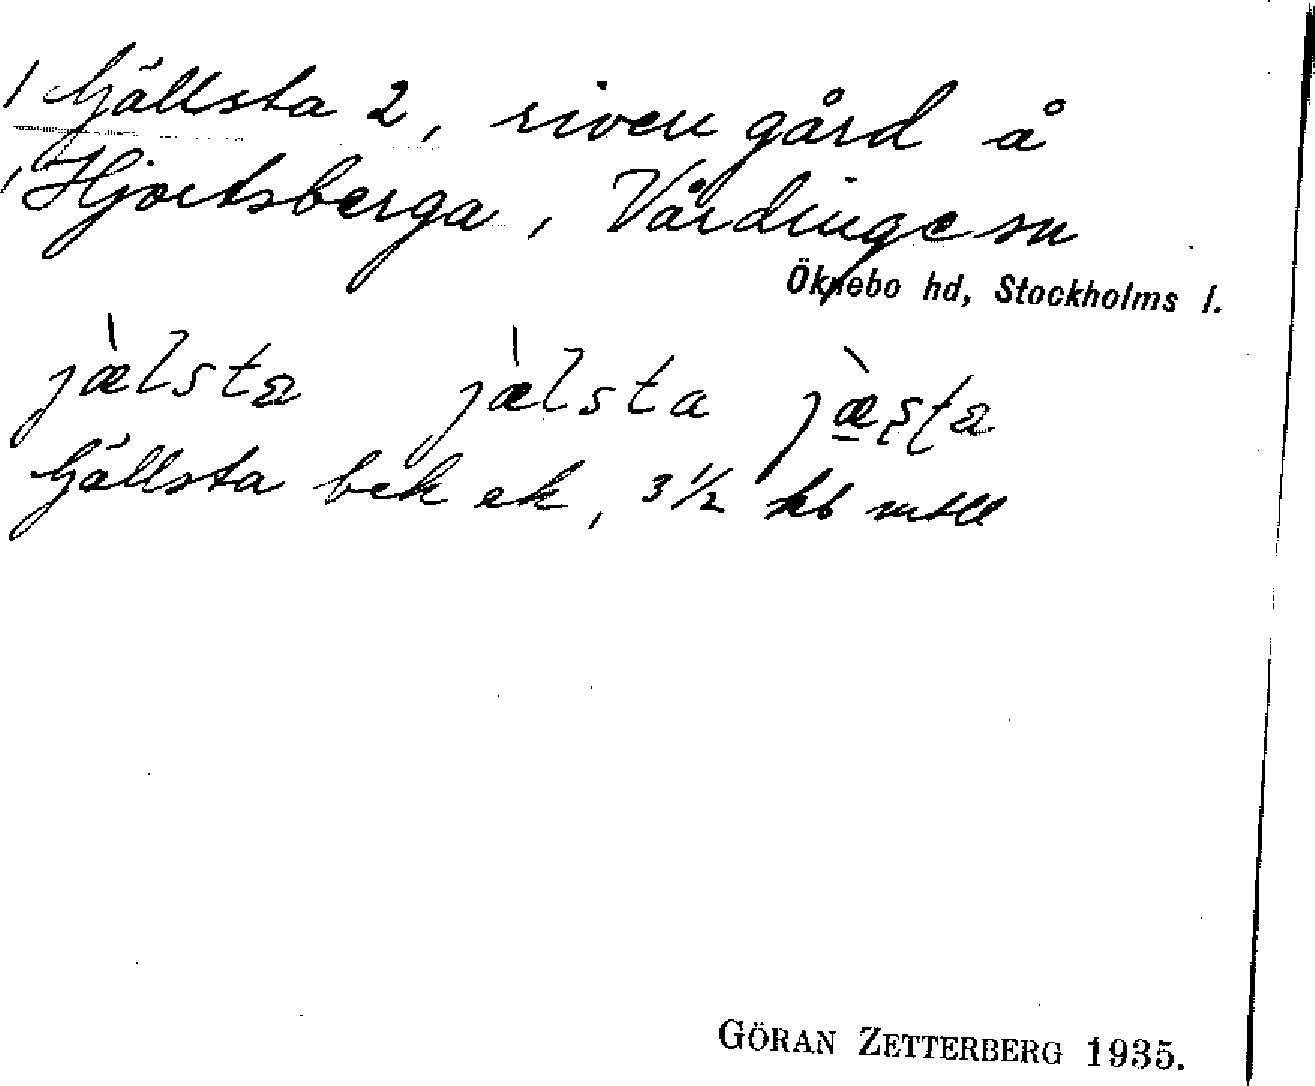 Gällsta 2, riven gård å
Hjortsberga, Vårdinge sn
Öknebo hd, Stockholms l.
jæ̀lsta jæ̀lsta jæ̀ṣṭa
Gällsta bek ek, 3 1/2 kb mtll
GÖRAN ZETTERBERG 1935.